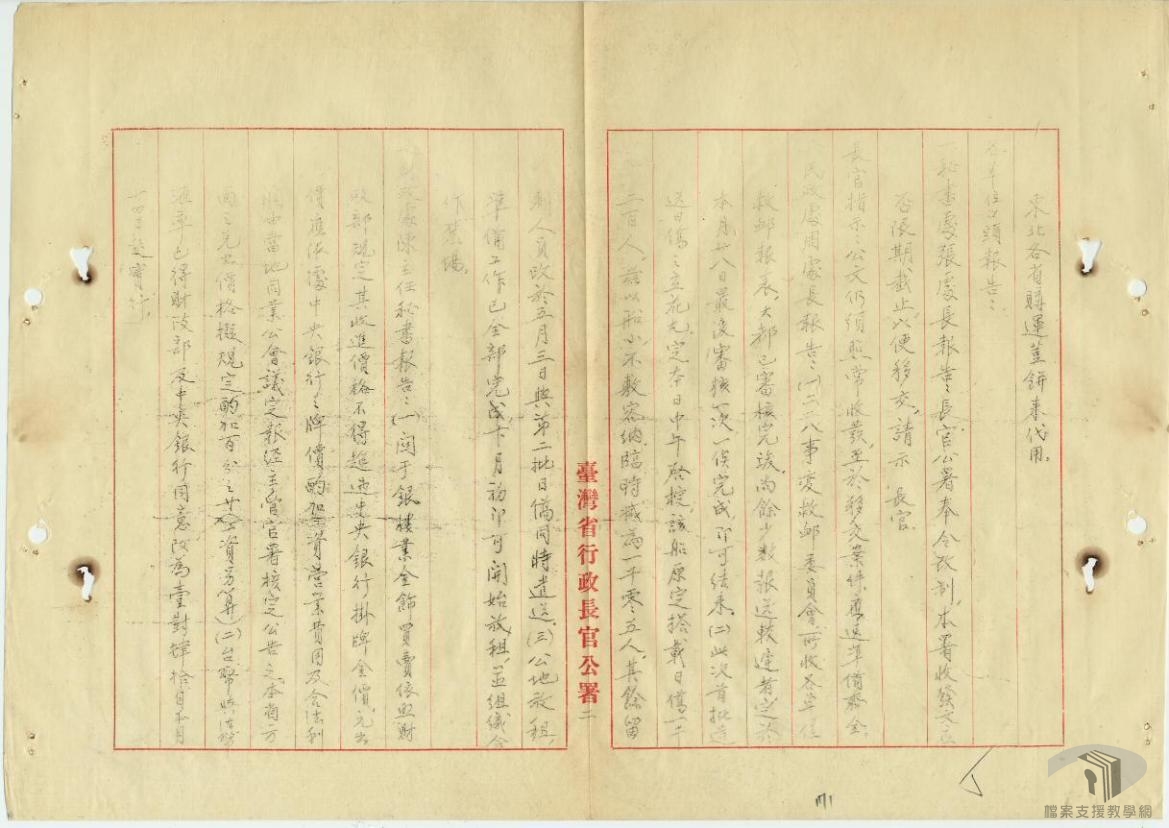 東北各省購運荳餅來代用。
各單位口頭報告：
秘書處張處長報告：長官公署奉令改制，本署收發文應
否限期截止，以便移交，請示 長官。
長官指示：公文仍須照常收發，至於移交案件應迅準備齊全。
民政處周處長報告：(一)二二八事變救郵委員會所收各單位
救郵報表，大都已審核完竣，尚餘少數報送較遲者定於
本月廿八日最後審核一次，一俟完成，即可結束。(二)此次首批遣
送日僑之立花丸，定本日中午啓椗，該船原定搭載日僑一千
二百人，茲以船小不敷容納，臨時減為一千零五人，其餘留
剩人員改於五月三日與第二批日僑同時遣送。(三)公地放租，
準備工作已全部完成，下月初即可開始放租，並組織合
作農場。
財政處陳主任秘書報告：(一)關于銀樓業金飾買賣依照財
政部規定其收進價格不得超過中央銀行掛牌金價，兌出
價應依處中央銀行之牌價酌加工資營業費用及合法利
潤由當地同業公會議定報經主管官署核定公告之，本省方
面之兌出價格擬規定酌加百分之廿(工資另算)(二)台幣與法幣
滙率已得財政部及中央銀行同意改為壹對肆拾自本月
廿四日起實行。
臺灣省行政長官公署
二
171
檔案支援教學網